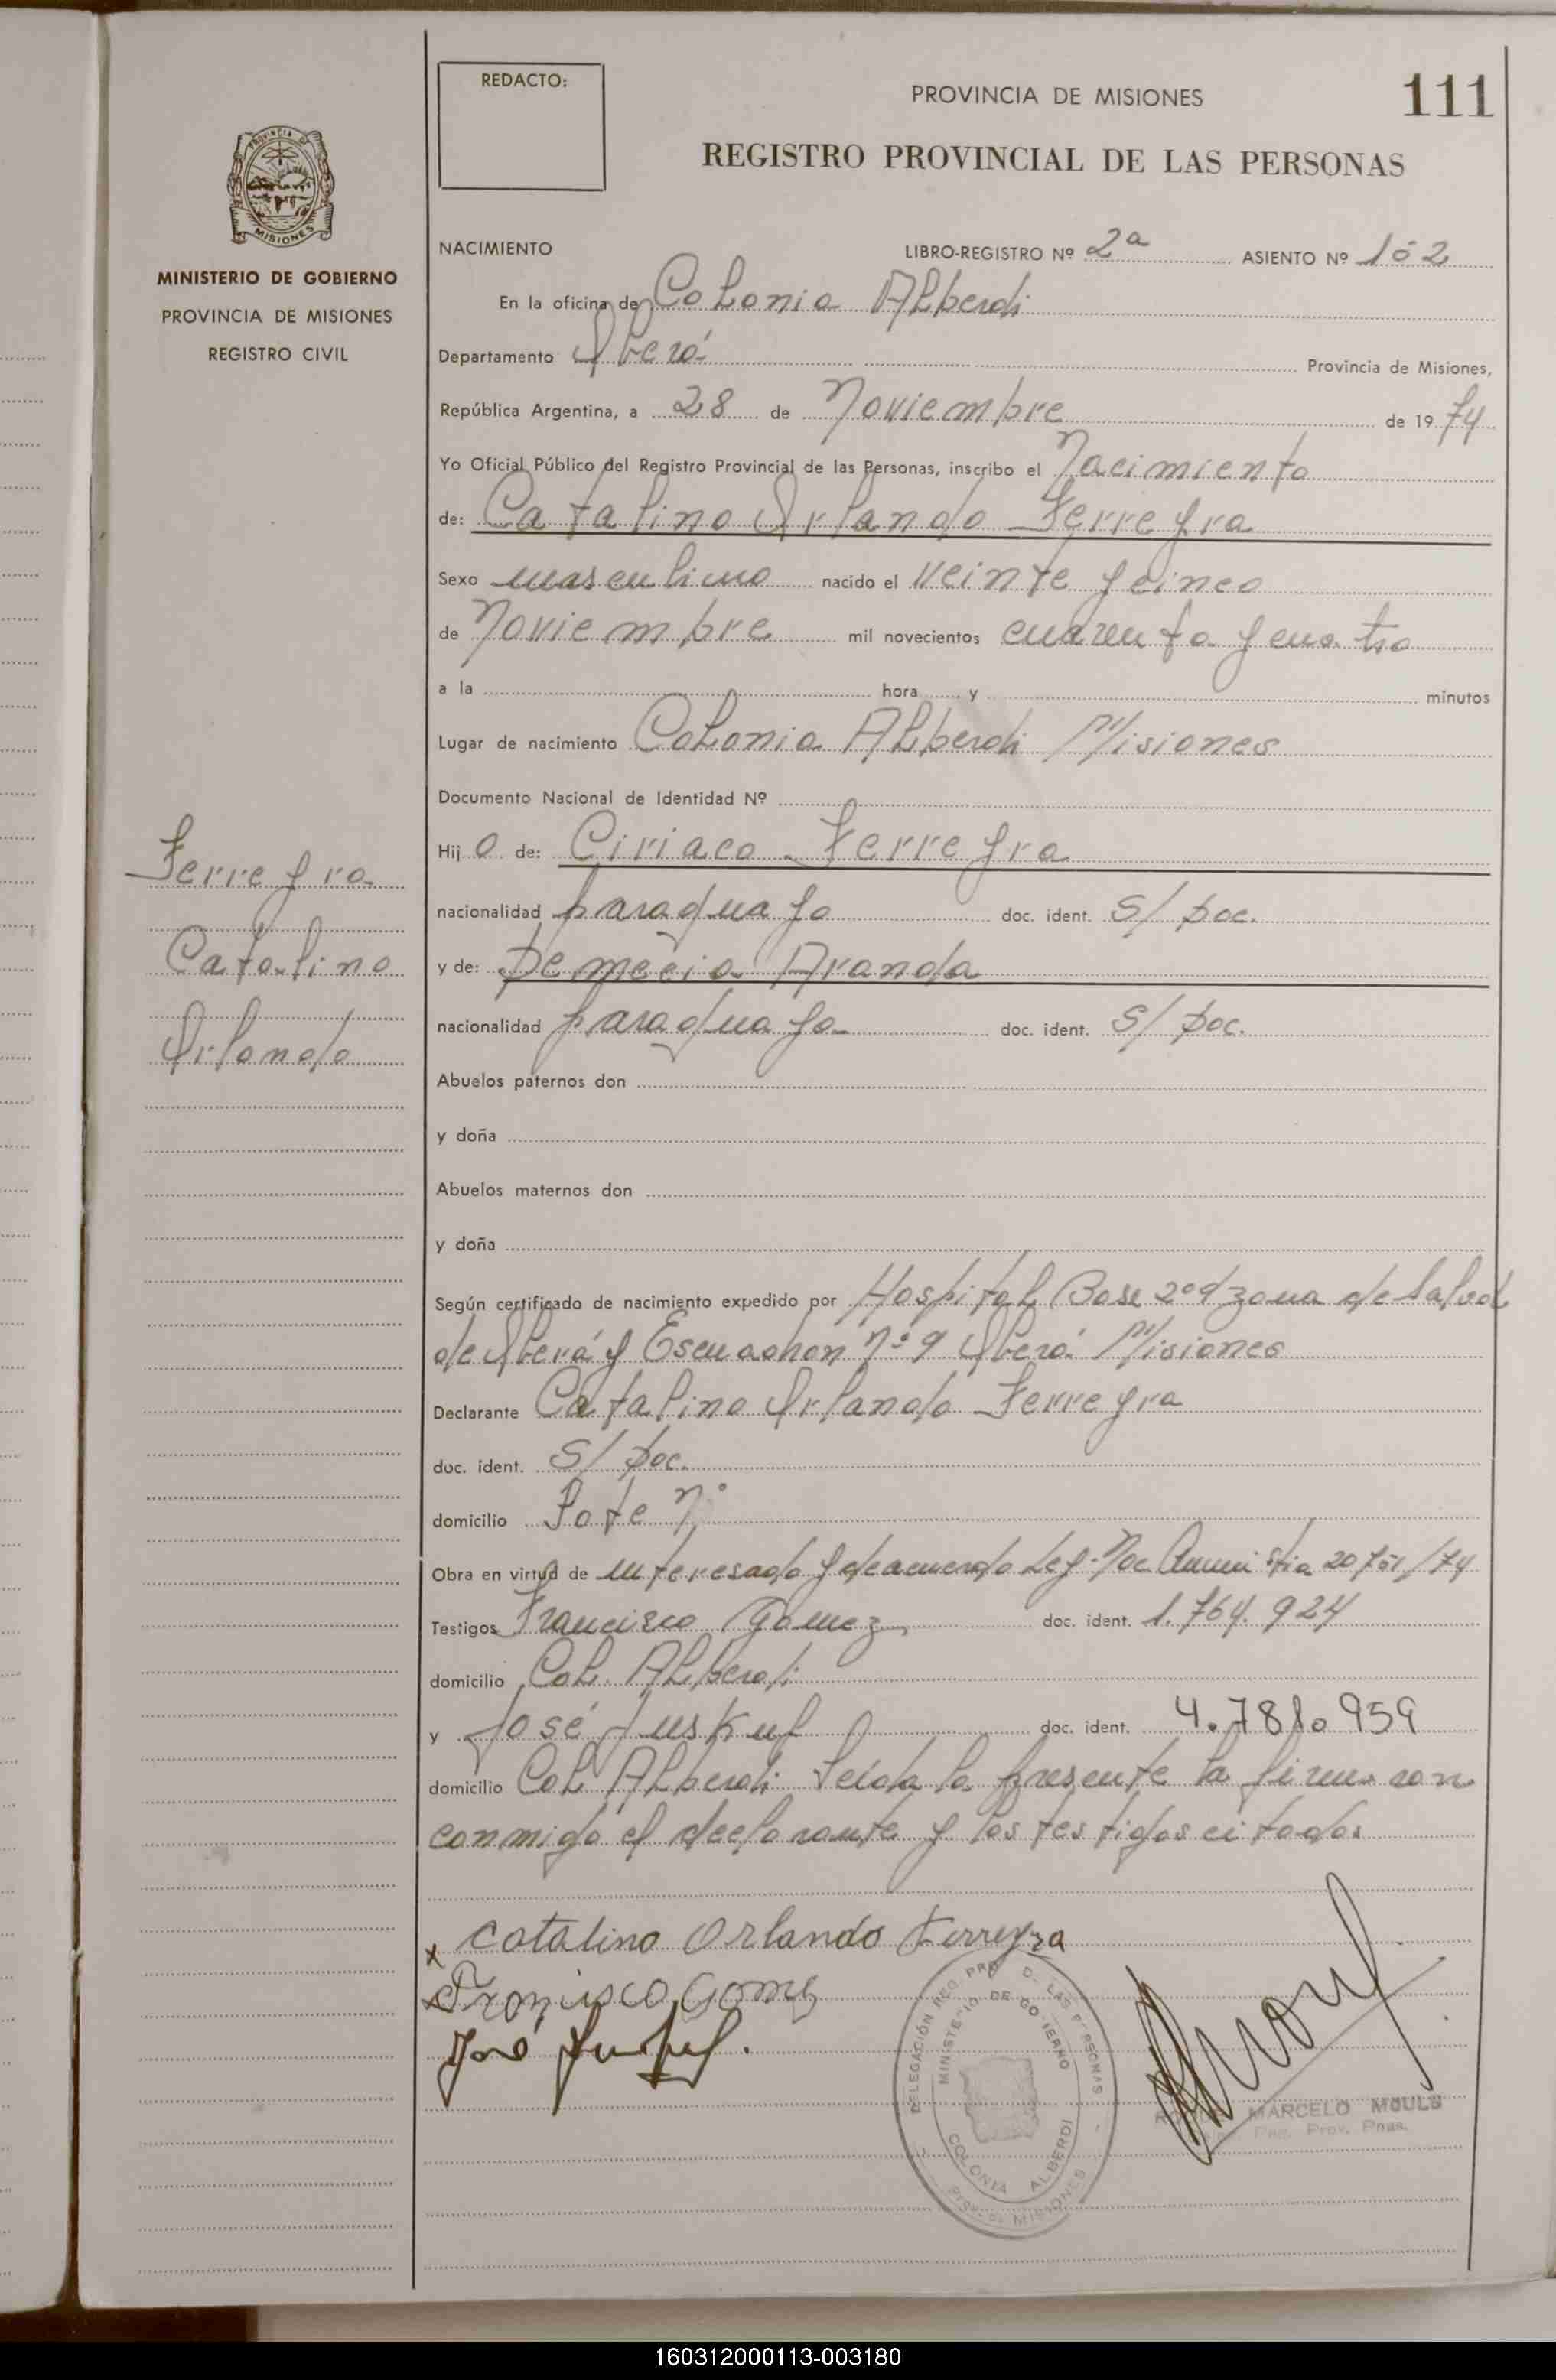 REDACTO:
PROVINCIA DE MISIONES
111
REGISTRO PROVINCIAL DE LAS PERSONAS
MISIONES
MINISTERIO DE GOBIERNO
PROVINCIA DE MISIONES
REGISTRO CIVIL
NACIMIENTO LIBRO-REGISTRO Nº 2ª ASIENTO Nº 102
En la oficina de Colonia Alberdi
Departamento Oberá Provincia de Misiones,
República Argentina, a 28 de Noviembre de 1974
Yo Oficial Público del Registro Provincial de las Personas, inscribo el Nacimiento
de: Catalino Orlando Ferreyra
Sexo masculino nacido el veinte y cinco
de Noviembre mil novecientos cuarenta y cuatro
a la hora y minutos
Lugar de nacimiento Colonia Alberdi Misiones
Documento Nacional de Identidad Nº
Hijo de: Ciriaco Ferreyra
nacionalidad paraguayo doc. ident. S/ Doc.
y de: Demecia Aranda
nacionalidad paraguaya doc. ident. S/ Doc.
Abuelos paternos don
y doña
Abuelos maternos don
y doña
Según certificado de nacimiento expedido por Hospital Base zona de Salud
de Oberá y Escuadron Nº 9 Oberá Misiones
Declarante Catalino Orlando Ferreyra
doc. ident. S/ Doc.
domicilio Lote Nº
Obra en virtud de interesado y deacuerdo Ley Amnistia
Testigos Francisco Gomez doc. ident. 1.764.924
domicilio Col. Alberdi
y José doc. ident. 4.781.959
domicilio Col Alberdi Leida la presente la firman con
conmigo el declarante y los testigos citados
Ferreyra
Catalino
Orlando
x Catalino Orlando Ferreyra
x Francisco Gomez
José
DELEGACIÓN REG. PROV. DE LAS PERSONAS
MINISTERIO DE GOBIERNO
COLONIA ALBERDI
PROV. DE MISIONES
MARCELO
Prov. Pnas.
160312000113-003180